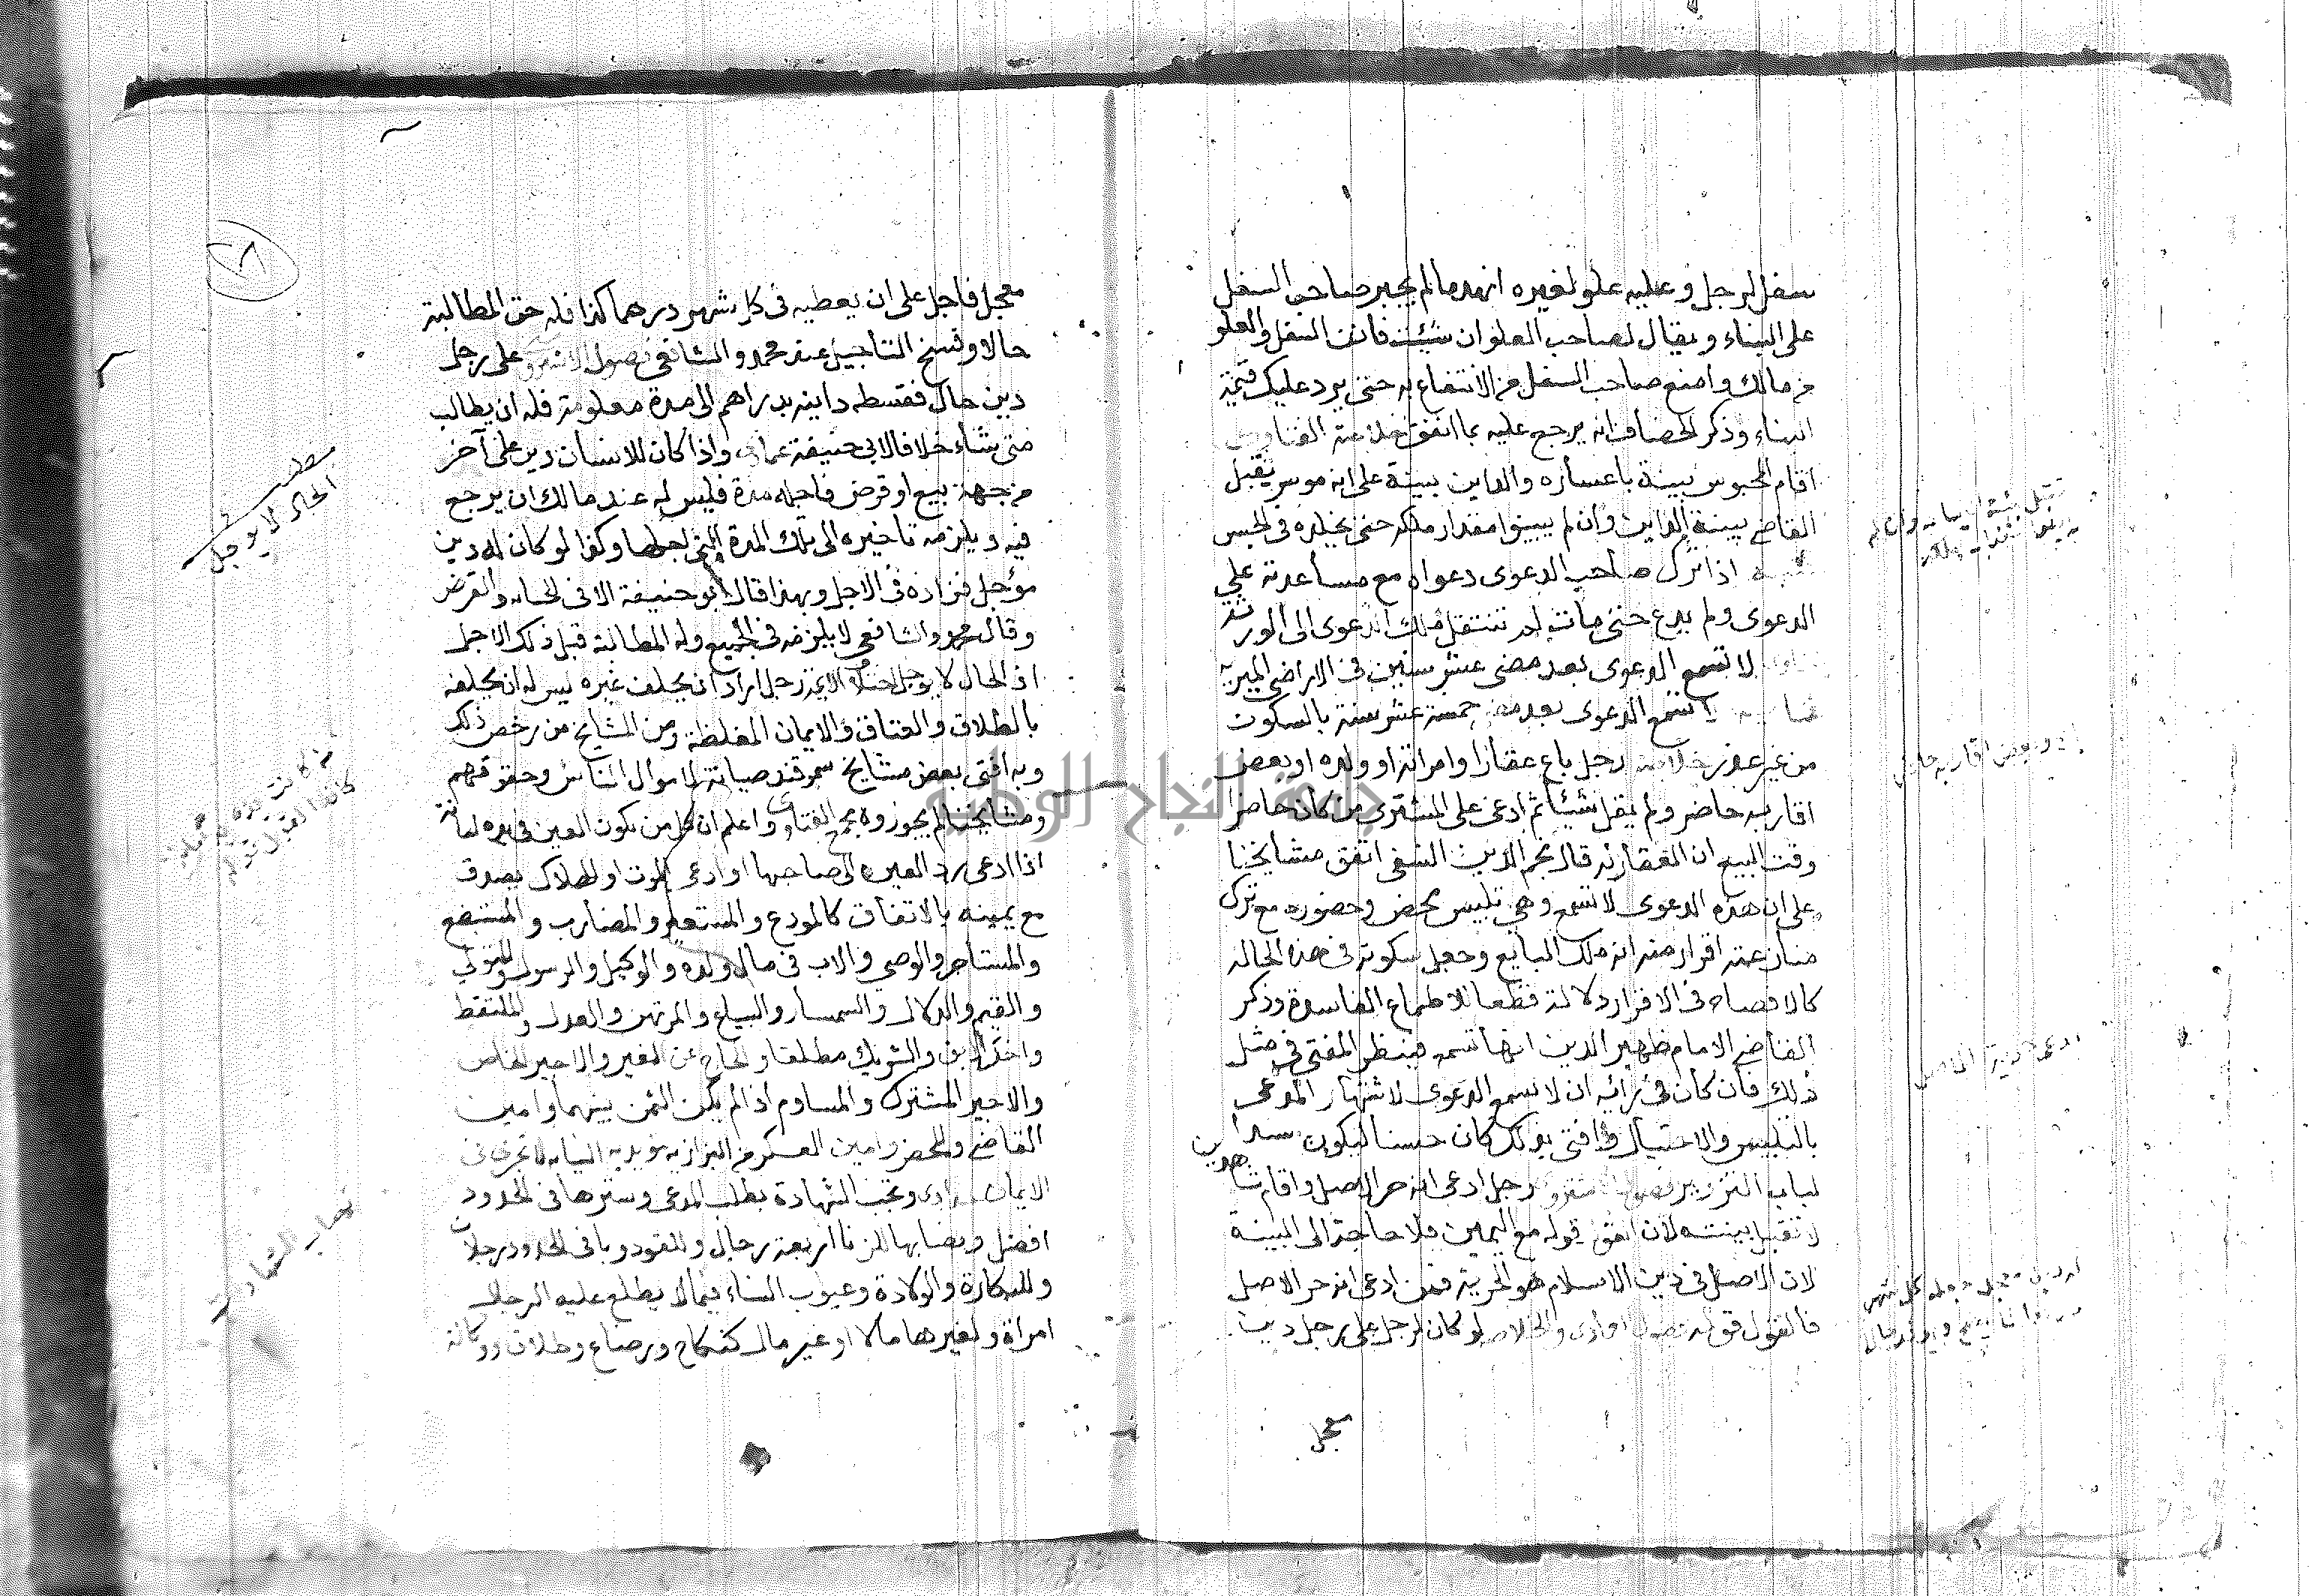 سفل لرجل وعليه علو لغيره انهدما لم يجبر صاحب السفل
على البناء ويقال لصاحب العلو ان شئت فابن السفل والعلو
من مالك وامنع صاحب السفل من الانتفاع به حتى يرد عليك قيمة
البناء وذكر الخصاف انه يرجع عليه بما انفق خلاصة الفتاوى
اقام المحبوس بينة باعساره والداين بينة على انه موسر يقبل
القاضي ببينة الداين وان لم يبينوا مقدار ملكه حتى يخلده في الحبس
اذا ترك صاحب الدعوى دعواه مع مساعدته على
الدعوى ولم يدع حتى مات لم تنتقل تلك الدعوى الى الورثة
لا تسمع الدعوى بعد مضى عشر سنين في الاراضي الميرية
لا تسمع الدعوى بعد مضى خمسة عشر سنة بالسكوت
من غير عذر خلاصة رجل باع عقارا وامراته او ولده او بعض
اقاربه حاضر ولم يقل شيئا ثم ادعى على المشترى من كان حاضرا
وقت البيع ان العقار له قال نجم الدين النسفى اتفق مشايخنا
على ان هذه الدعوى لا تسمع وهي تلبيس محض وحضوره مع ترك
منازعته اقرار منه انه ملك البايع وجعل سكوته في هذه الحالة
كالافصاح في الاقرار دلالة قطعا للاطماع الفاسدة وذكر
القاضي الامام ظهير الدين انها تسمع فينظر المفتي في مثل
ذلك فان كان في رأيه ان لا تسمع الدعوى لاشتهار المدعى
بالتلبيس والاحتيال وافتى بذلك كان حسنا ليكون سدا
لباب التزوير رجل ادعى انه حر الاصل واقام شاهدين
لا تقبل بينته لان القول قوله مع اليمين فلا حاجة الى البينة
لان الاصل في دين الاسلام هو الحرية فمن ادعى انه حر الاصل
فالقول قوله لو كان لرجل على رجل دين
معجل
معجل فاجل على ان يعطيه في كل شهر درهما كذا فله حق المطالبة
حالا وفسخ التأجيل عند محمد والشافعى على رجل
دين حال فقسطه داينه بدراهم الى مدة معلومة فله ان يطالب
متى شاء خلافا لابي حنيفة واذا كان للانسان دين على آخر
من جهة بيع او قرض فاجله مدة فليس له عند مالك ان يرجع
فيه ويلزمه تأخيره الى تلك المدة التي اجلها وكذا لو كان له دين
مؤجل فزاده في الاجل وبهذا قال أبو حنيفة الا في والقرض
وقال محمد والشافعى لا يلزمه في الجميع وله المطالبة قبل ذلك الاجل
اذ الحال لا يؤجل رجل اراد ان يحلف غيره ليس له ان يحلفه
بالطلاق والعتاق والايمان المغلظة ومن المشايخ من رخص ذلك
وبه افتى بعض مشايخ سمرقند صيانة لاموال الناس وحقوقهم
ومشايخنا لم يجوزوه مجمع الفتاوى واعلم ان كل من تكون العين في يده امانة
اذا ادعى رد العين الى صاحبها او ادعى الموت او الهلاك يصدق
مع يمينه بالاتفاق كالمودع والمستعير والمضارب والمستبضع
والمستاجر والوصى والاب في مال ولده والوكيل والرسول والمتولي
والقيم والدلال والسمسار والبياع والمرتهن والعدل والملتقط
واخذ الابق والشريك مطلقا والحاج عن الغير والاجير الخاص
والاجير المشترك والمساوم اذا لم يكن الثمن بينهما وامين
القاضي والمحضر وامين العسكر من البزازيه النيابه لا تجرى في
الايمان وتجب الشهادة بطلب المدعى وسترها في الحدود
افضل ونصابها للزنا اربعة رجال وللقود وباقي الحدود رجلان
وللبكارة والولادة وعيوب النساء فيما لا يطلع عليه الرجال
امراة ولغيرها مالا او غير مال كنكاح ورضاع وطلاق ووكالة
مطلب
الحال لا يؤجل
نصاب الشهادة
جامعة النجاح الوطنية